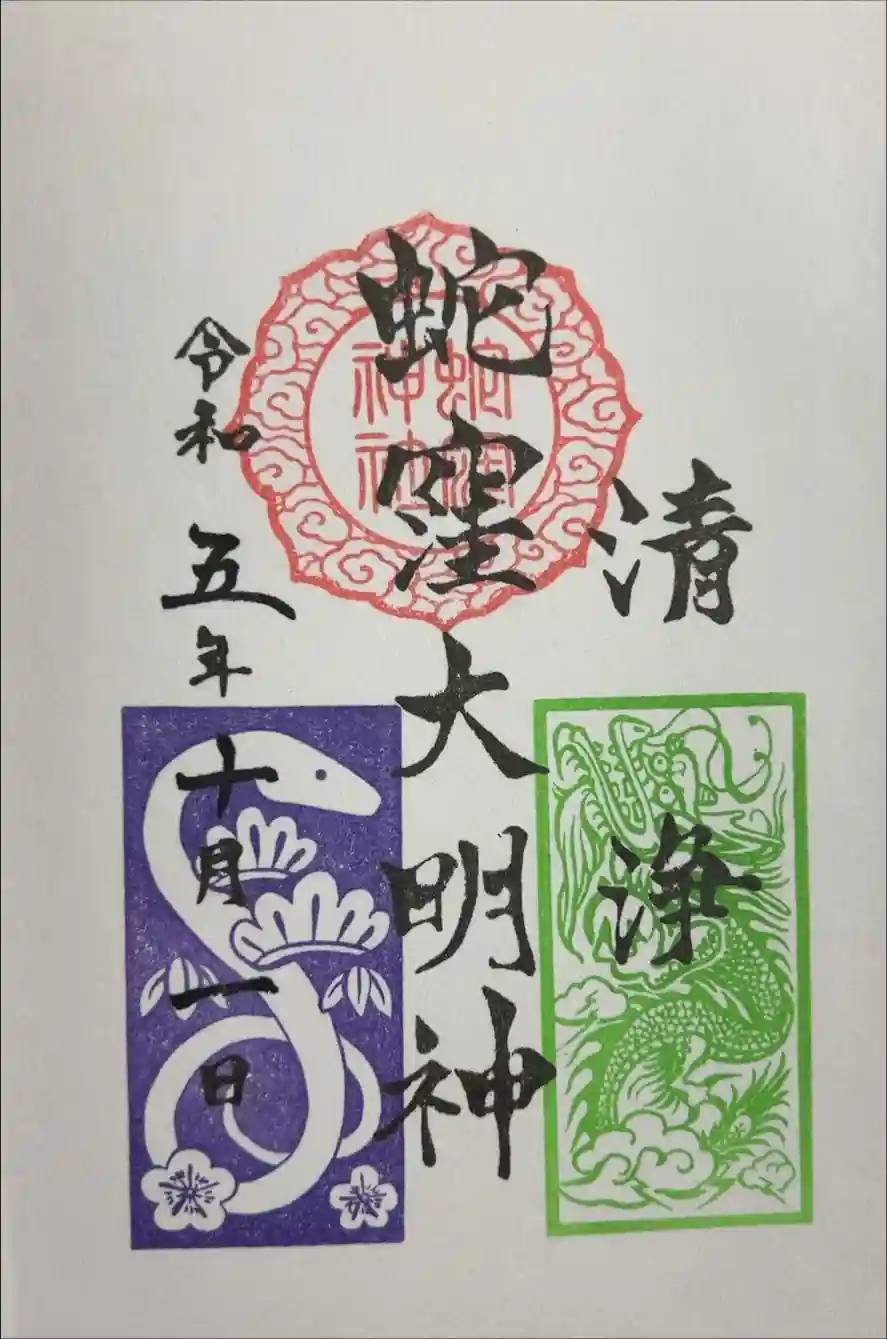 清浄
蛇窪大明神
蛇窪神社
令和五年十月一日